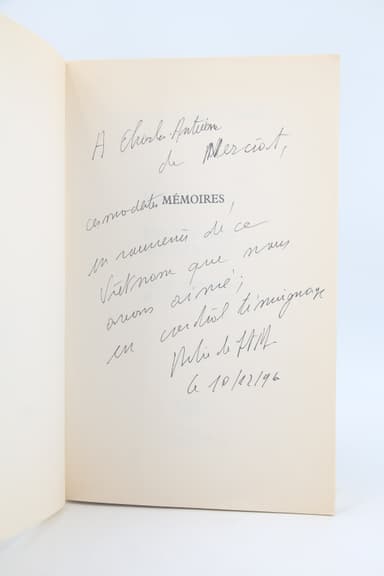 A Charles-Antoine
de Nerciat,
ces modestes MÉMOIRES,
en souvenir de ce
Vietnam que nous
avons aimé;
en cordial témoignage
le 10/12/96